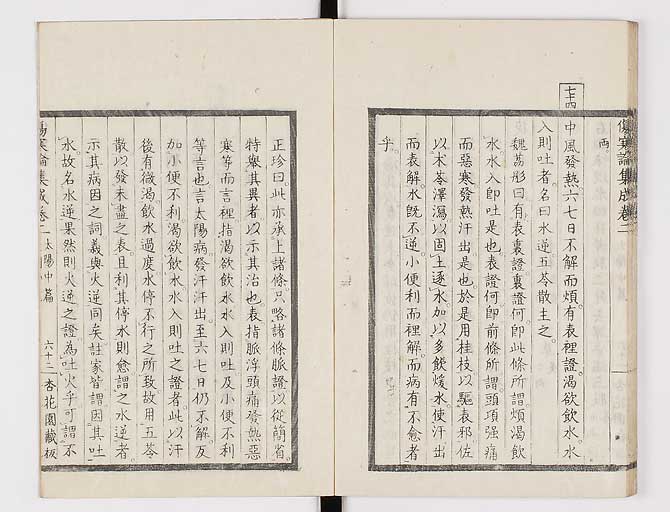 傷寒論集成卷二
兩。
七十四
中風發熱六七日不解而煩。有表裡證渴欲飲水。水
入則吐者。名曰水逆五苓散主之。
魏荔彤曰有表裏證裏證何即此條所謂煩渴飲
水水入即吐是也表證何即前條所謂頭項强痛
而惡寒發熱汗出是也於是用桂枝以驅表邪佐
以术苓澤瀉以固土逐水加以多飲煖水使汗出
而表解水既不逆小便利而裡解而病有不愈者
乎。
正珍曰此亦承上諸條只略諸條脈證以從簡省。
特舉其異者以示其治也表指脈浮頭痛發熱惡
寒等而言裡指渴欲飲水水入則吐及小便不利
等言也言太陽病發汗汗出至六七日仍不解反
加小便不利。渴欲飲水水入則吐之證者此以汗
後有微渴飲水過度水停不行之所致故用五苓
散以發未盡之表且利其停水則愈謂之水逆者。
示其病因之詞義與火逆同矣註家皆謂因其吐
水故名水逆果然則火逆之證為吐火乎可謂不
傷寒論集成卷二 太陽中篇 六十三 杏花園藏板